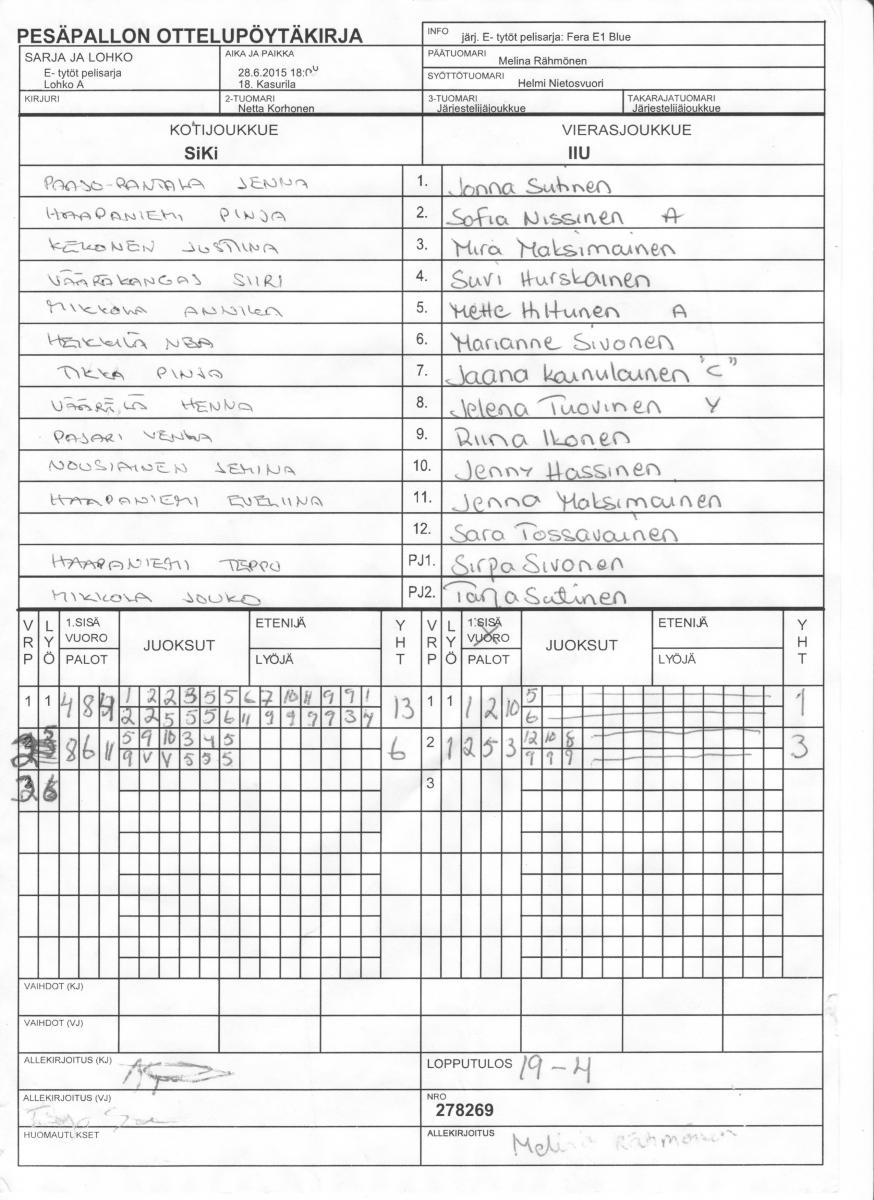 PESÄPALLON OTTELUPÖYTÄKIRJA
INFO järj. E- tytöt pelisarja: Fera E1 Blue
SARJA JA LOHKO
E- tytöt pelisarja
Lohko A
AIKA JA PAIKKA
28.6.2015 18:00
18. Kasurila
PÄÄTUOMARI Melina Rähmönen
SYÖTTÖTUOMARI Helmi Nietosvuori
KIRJURI
2-TUOMARI
Netta Korhonen
3-TUOMARI
Järjestelijäjoukkue
TAKARAJATUOMARI
Järjestelijäjoukkue
KOTIJOUKKUE VIERASJOUKKUE
SiKi IIU
PAASO-RANTALA JENNA 1. Jonna Suhnen
HAAPANIEMI PINJA 2. Sofia Nissinen A
KEKONEN JUSTINA 3. Mira Maksimainen
VÄÄRÄKANGAS SIIRI 4. Suvi Hurskainen
MIKKOLA ANNIKA 5. Mette Hiltunen A
HEIKKILÄ NEA 6. Marianne Sivonen
TIKKA PINJA 7. Jaana Kainulainen "C"
VÄÄRÄLÄ HENNA 8. Jelena Tuovinen Y
PAJARI VENLA 9. Riina Ikonen
NOUSIAINEN JEMINA 10. Jenny Hassinen
HAAPANIEMI EVELIINA 11. Jenna Maksimainen
12. Sara Tossavainen
HAAPANIEMI TEPPO PJ1. Sirpa Sivonen
MIKKOLA JOUKO PJ2. Tarja Sutinen
VRP LYÖ 1.SISÄ VUORO PALOT JUOKSUT ETENIJÄ LYÖJÄ YHT VRP LYÖ 1.SISÄ VUORO PALOT JUOKSUT ETENIJÄ LYÖJÄ YHT
1 1 4 8 4 1 2 2 3 5 5 6 7 10 11 9 9 1 13 1 1 1 2 10 5 1
2 2 5 5 5 6 11 9 9 9 9 3 4 6
8 6 11 5 9 10 3 4 5 6 2 1 2 5 3 12 10 8 3
9 V V 5 5 5 9 9 9
3
VAIHDOT (KJ)
VAIHDOT (VJ)
ALLEKIRJOITUS (KJ)
LOPPUTULOS 19-4
ALLEKIRJOITUS (VJ)
NRO
278269
HUOMAUTUKSET
ALLEKIRJOITUS Melina Rähmönen